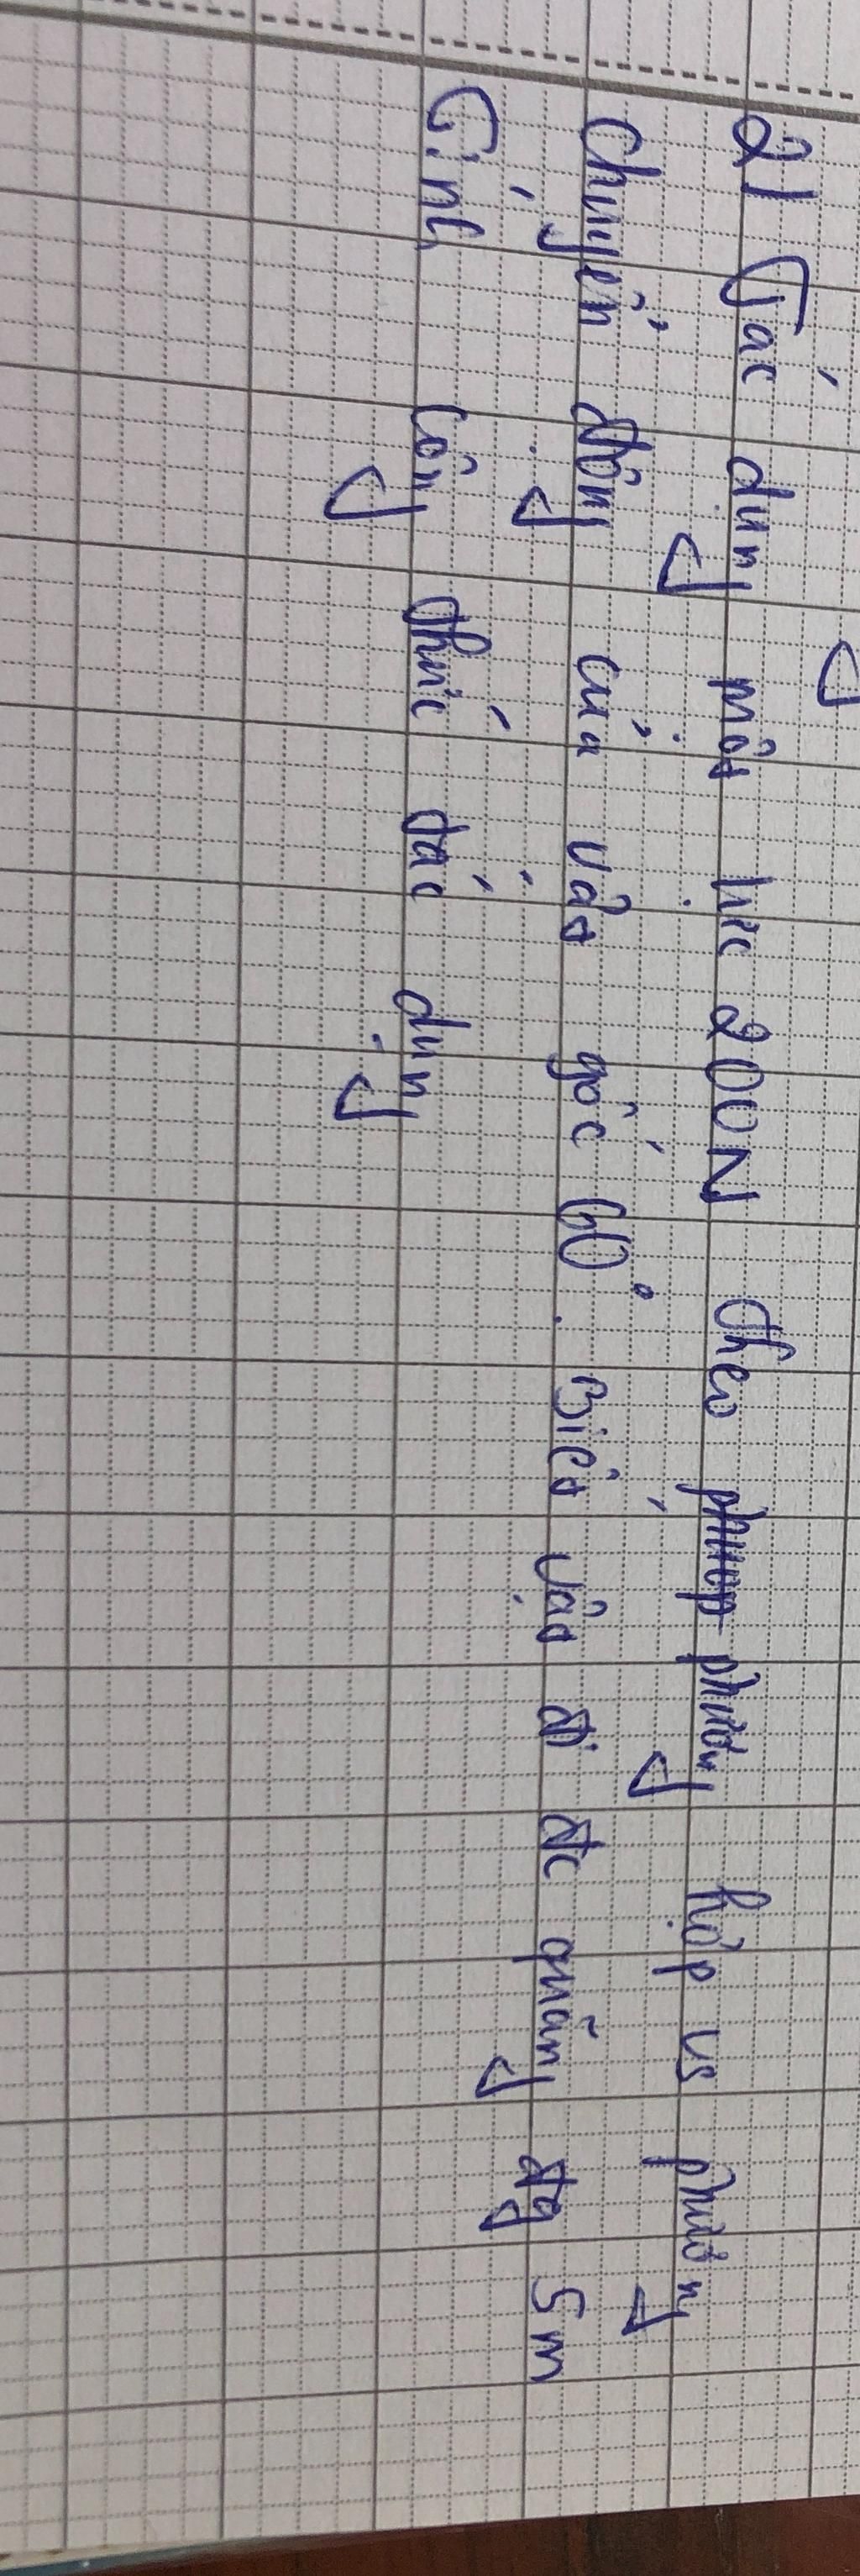 2) Tác dụng một lực 200N theo phương hợp vs phương
chuyển động của vật góc 60°. Biết vật đi đc quãng đg 5m
Tính công thức tác dụng